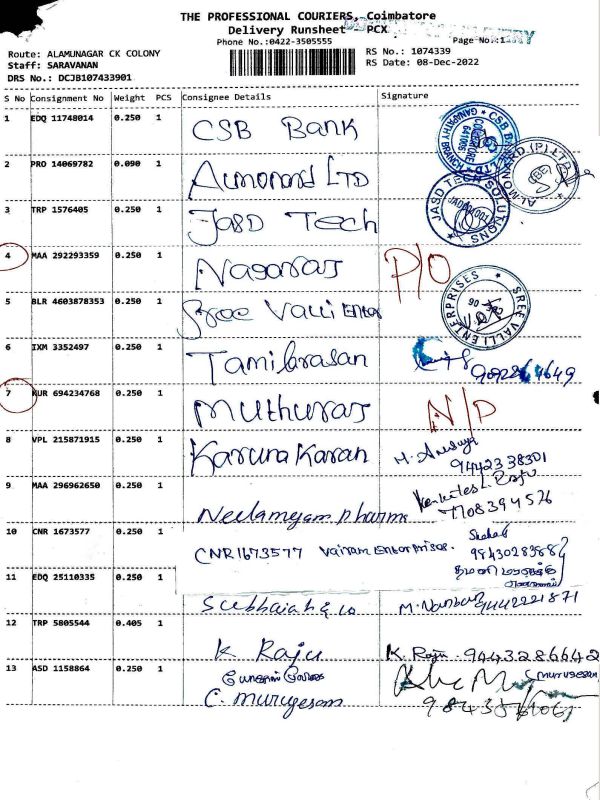 THE PROFESSIONAL COURIERS, Coimbatore
Delivery Runsheet - PCX
Phone No.:0422-3505555
Page No.:1
Route: ALAMUNAGAR CK COLONY
Staff: SARAVANAN
DRS No.: DCJB107433901
RS No.: 1074339
RS Date: 08-Dec-2022
S No Consignment No Weight PCS Consignee Details Signature
1 EDQ 11748014 0.250 1 CSB Bank
2 PRO 14069782 0.090 1 Almonard LTD
3 TRP 1576405 0.250 1 JASD Tech
JASD TECH SOLUTIONS
4 MAA 292293359 0.250 1 Nagaraj P/O
5 BLR 4603878353 0.250 1 Sree Valli Enter
SREE VALLI ENTERPRISES
6 IXM 3352497 0.250 1 Tamilarasan
7 KUR 694234768 0.250 1 Muthuraj N/D
8 VPL 215871915 0.250 1 Karuna Karan
9442338301
9 MAA 296962650 0.250 1 Neelamegam Pharma
7708394526
10 CNR 1673577 0.250 1 CNR1673577 Vairam Enterprises.
11 EDQ 25110335 0.250 1 Subbaiah & co 9442221871
12 TRP 5805544 0.405 1 K Raju K. Raju. 9443286642
13 ASD 1158864 0.250 1
C. Murugesam